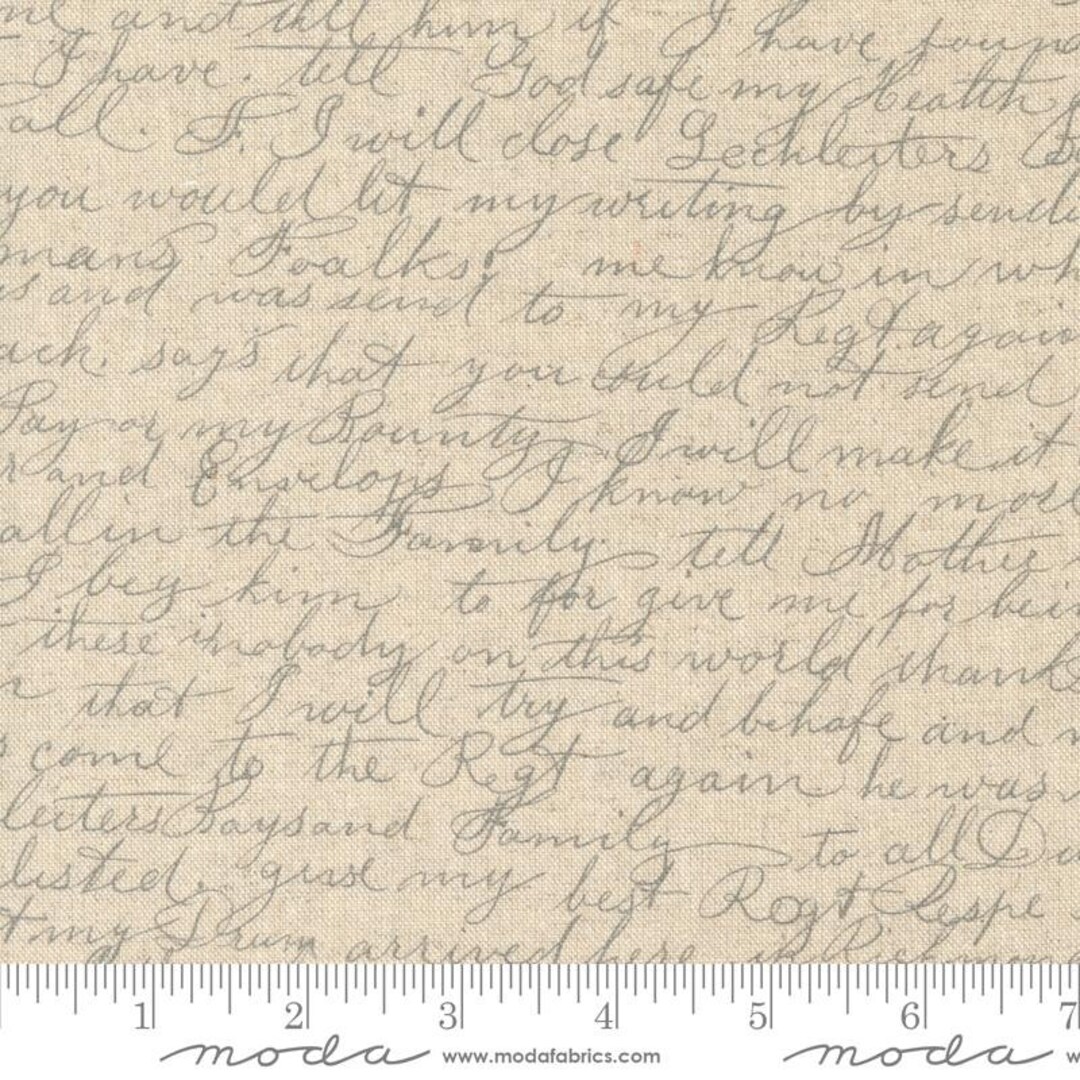 me and tell him if I have found
I have. tell God safe my Health
all. F. I will close Lechleiters
you would let my writing by sendi
mans Foalks. me know in wh
and was send to my Regt. again
ack. says that you could not send
Pay or my Bounty I will make it
and Envelops I know no more
all in the Family tell Mother
I beg him to for give me for bein
these is nobody on this world thank
that I will try and behafe and
come to the Regt again he was
leiters Boys and Family to all
listed. give my best Regt Respe
my Drum arrived here in Richmon
1 2 3 4 5 6 7
moda www.modafabrics.com moda w